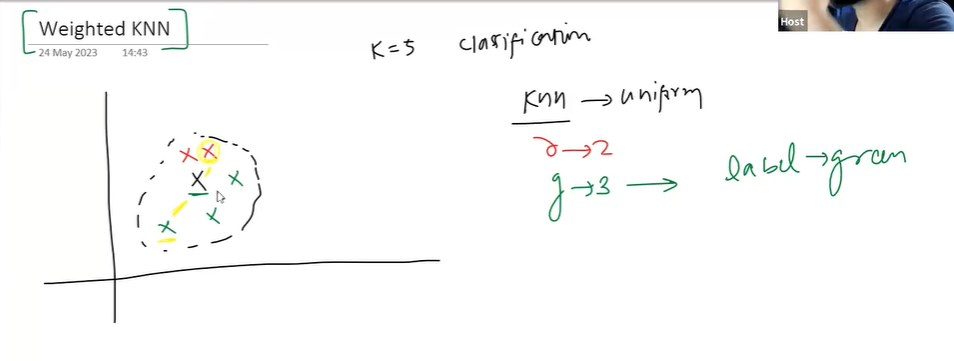 Weighted KNN
24 May 2023 14:43
Host
K=5 Clasification
Knn → uniform
r → 2
g → 3 → label → green
X X
X X
X
X